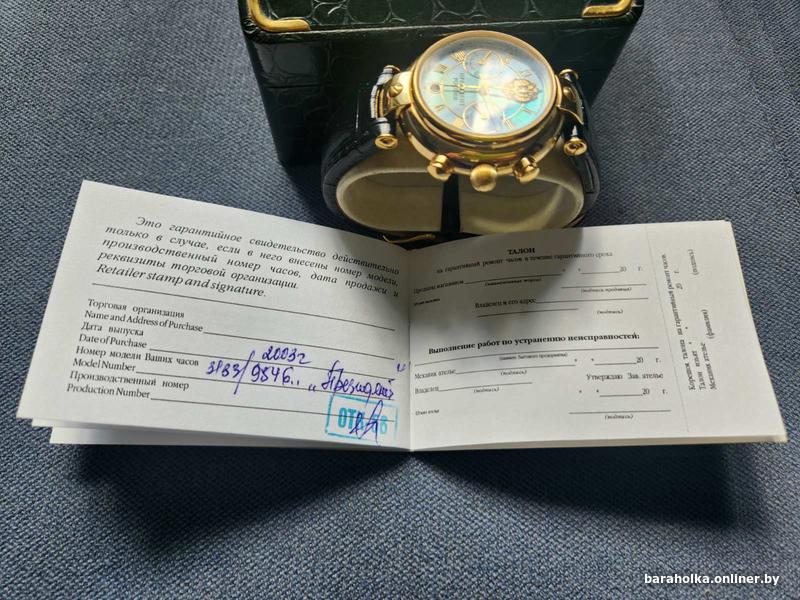 Это гарантийное свидетельство действительно
только в случае, если в него внесены номер модели,
производственный номер часов, дата продажи и
реквизиты торговой организации.
Retailer stamp and signature.
Торговая организация
Name and Address of Purchase
Дата выпуска
Date of Purchase
2003г
Номер модели Ваших часов
Model Number
3133/9846.. "Президент"
Производственный номер
Production Number
ОТК
ТАЛОН
на гарантийный ремонт часов в течение гарантийного срока
Продана магазином " " 20 г.
(подпись продавца)
Владелец и его адрес
(подпись)
Выполнение работ по устранению неисправностей:
Механик ателье " " 20 г.
(подпись)
Владелец
(подпись)
Утверждаю Зав. ателье
" " 20 г.
(подпись)
Корешок талона на гарантийный ремонт часов
Талон изъят " " 20 г.
Механик ателье
(фамилия)
(подпись)
baraholka.onliner.by